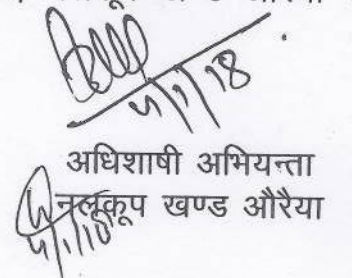 4/1/18
अधिशाषी अभियन्ता
नलूकूप खण्ड औरैया
4/1/18